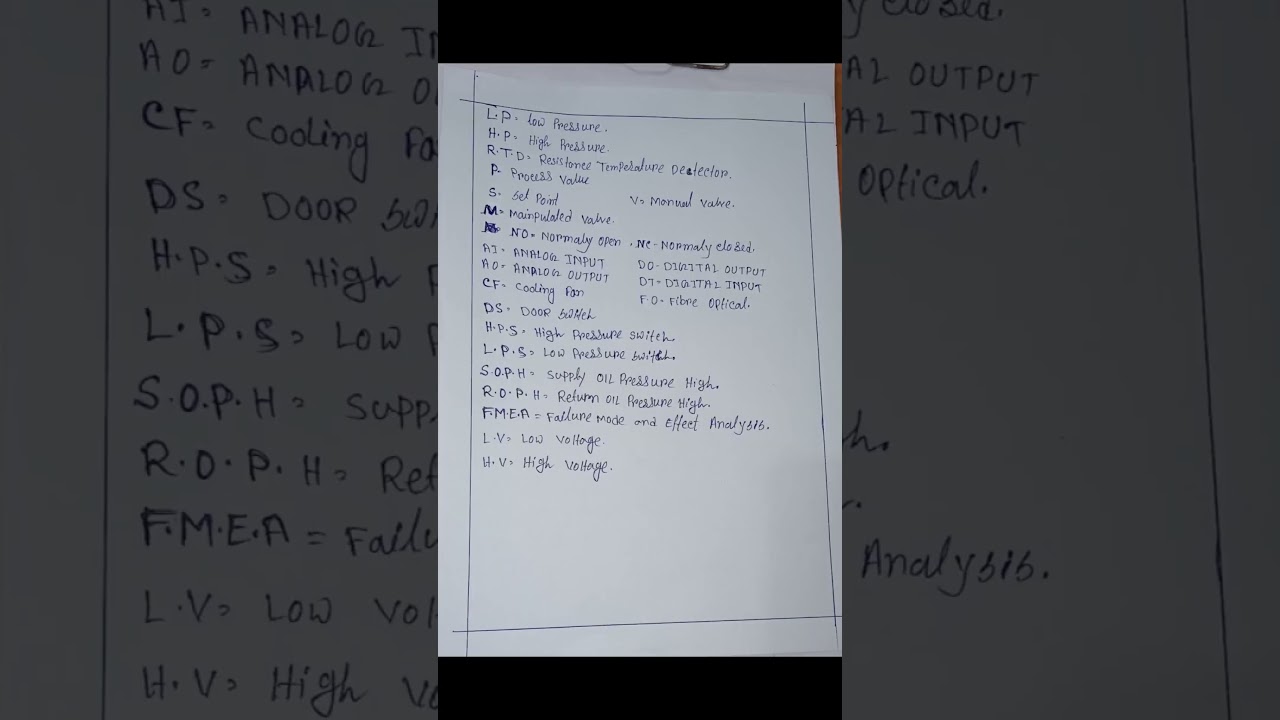 L.P= Low Pressure.
H.P= High Pressure.
R.T.D= Resistance Temperature Detector.
P- Process Value
S- Set Point V= Manual Valve.
M= Mainpulated Valve.
NO= Normaly open , NC- Normaly closed.
AI= ANALOG INPUT DO- DIGITAL OUTPUT
AO= ANALOG OUTPUT DI= DIGITAL INPUT
CF= Cooling Fan F.O- Fibre Optical.
DS= DOOR Switch
H.P.S= High Pressure Switch.
L.P.S= Low Pressure Switch.
S.O.P.H= Supply OIL Pressure High.
R.O.P.H= Return OIL Pressure High.
F.M.E.A= Failure Mode and Effect Analysis.
L.V= Low Voltage.
H.V= High Voltage.